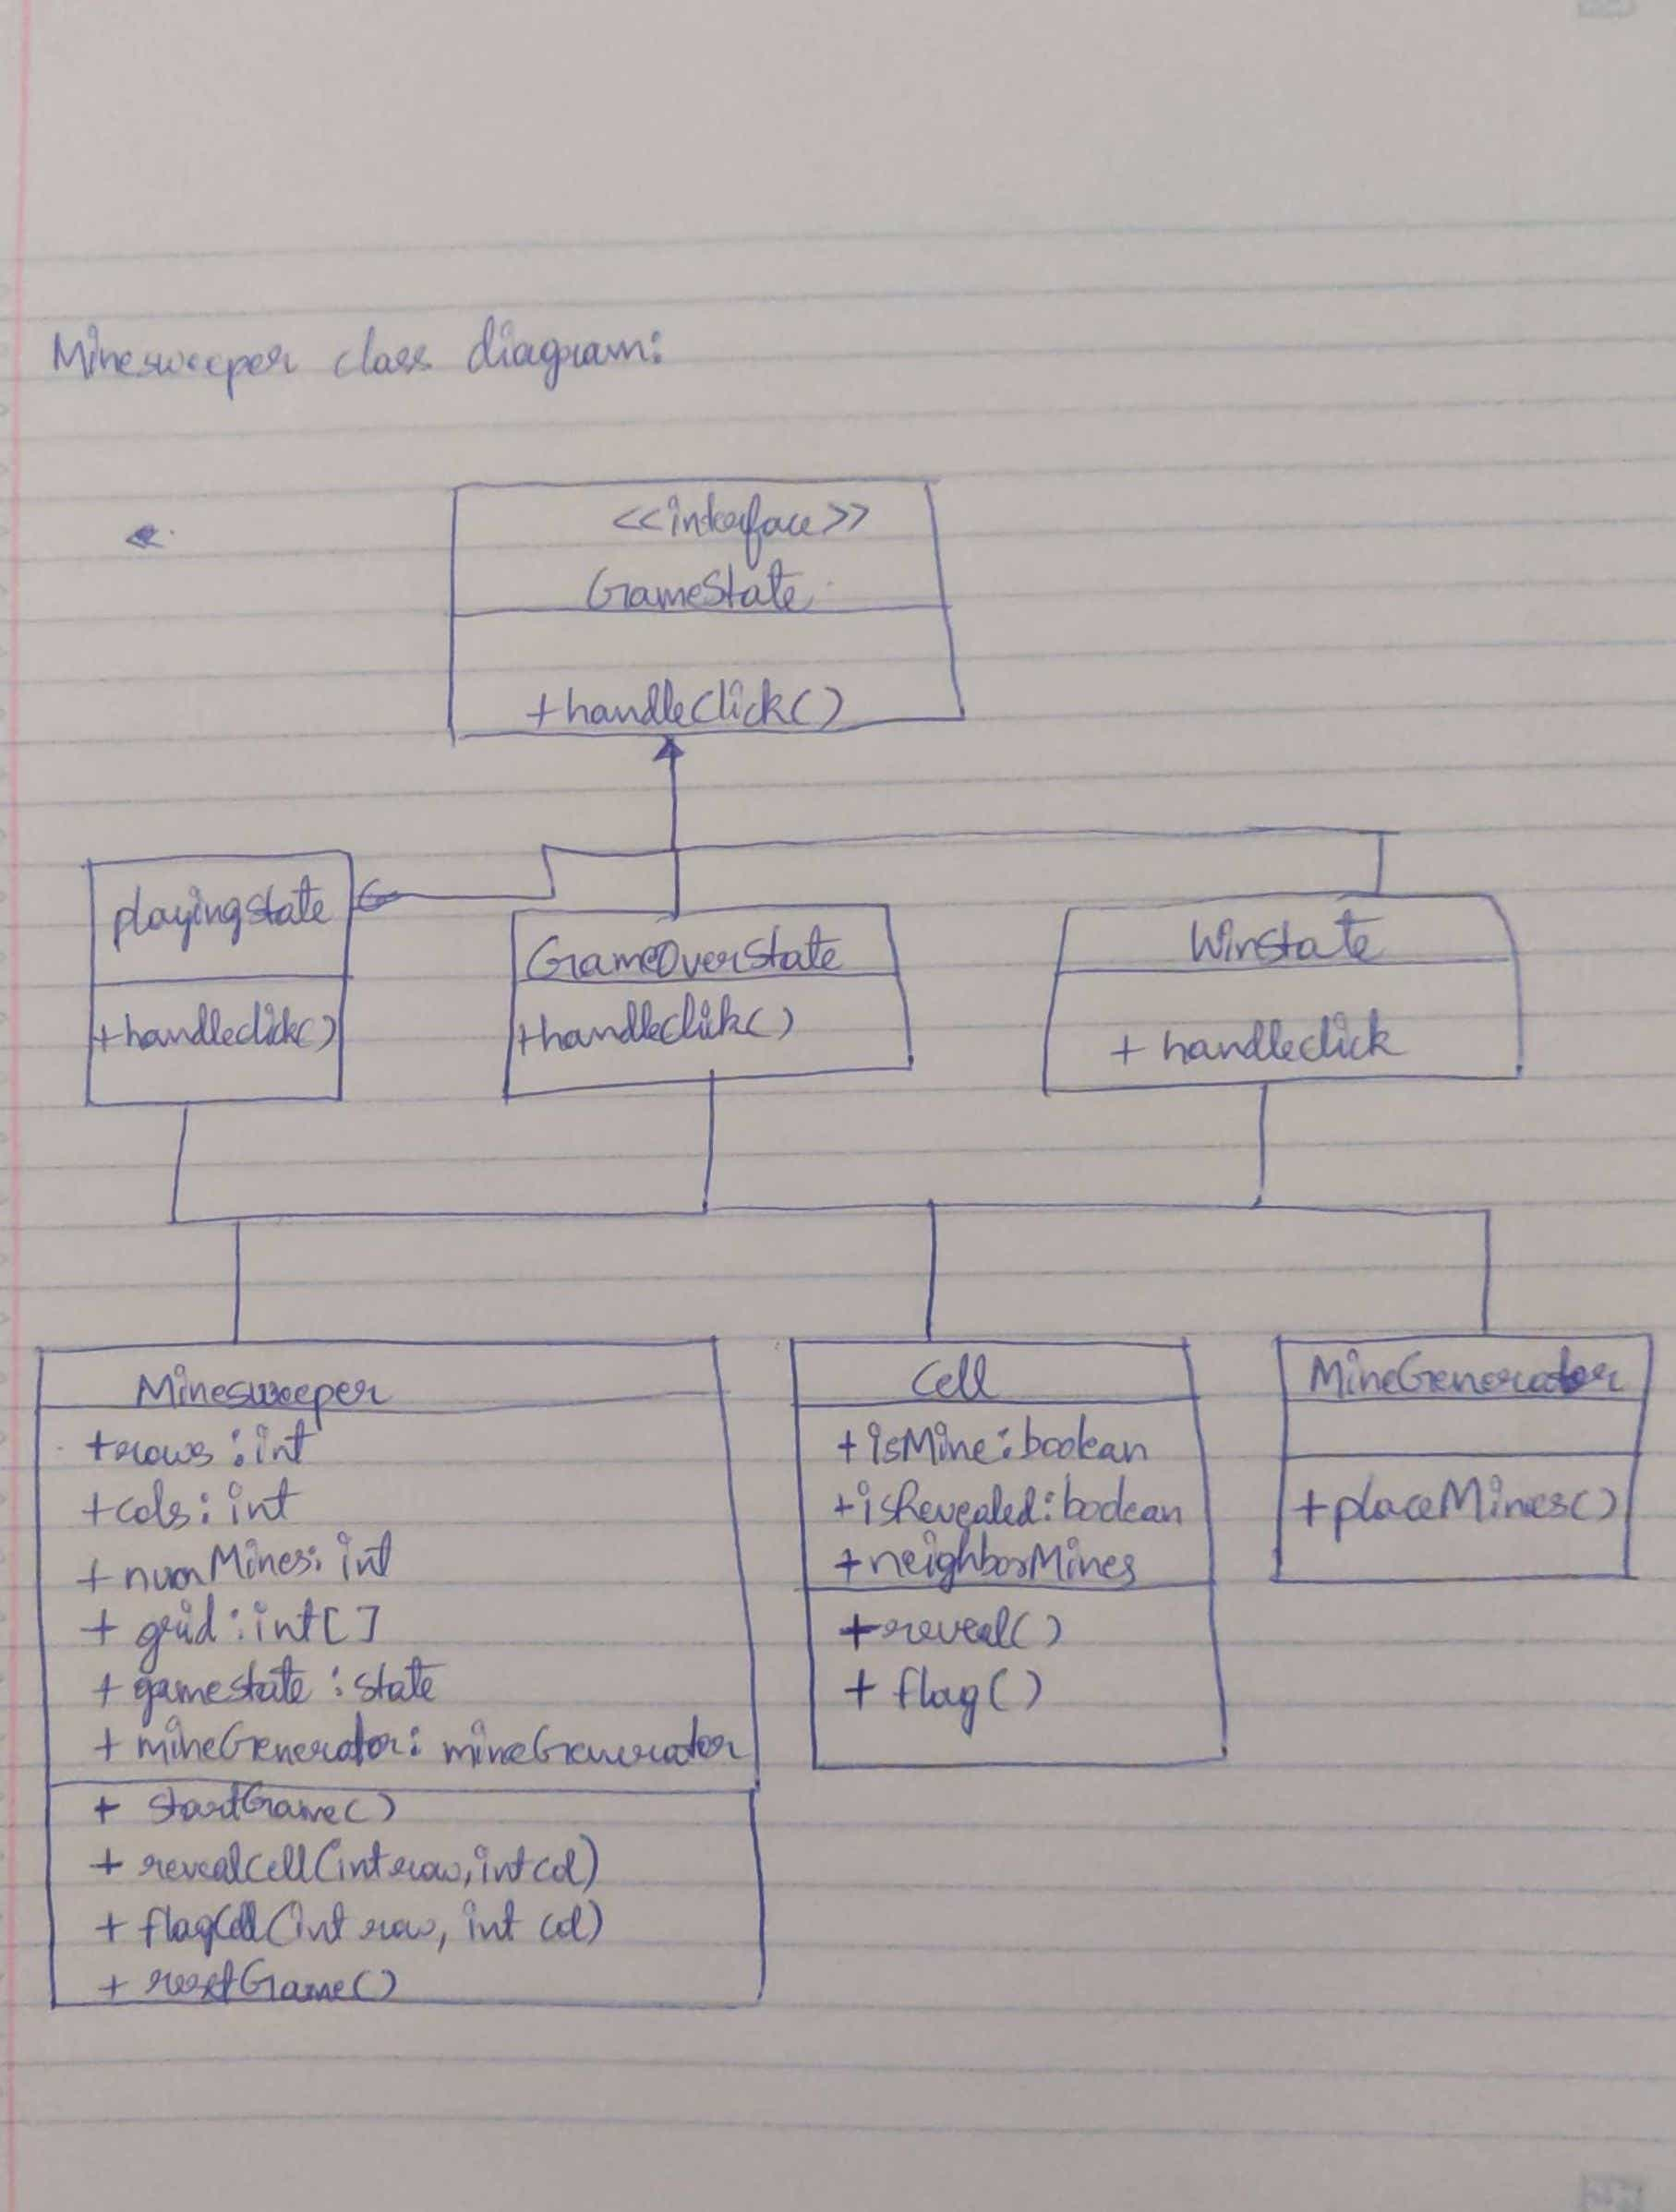 Minesweeper class diagram:
<<interface>>
GameState
+handleClick()
playingstate
+handleclick()
GameOverState
+handleClick()
Winstate
+ handleclick
Minesweeper
+rows : int
+cols : int
+ numMines: int
+ grid : int[]
+ gamestate : state
+ mineGenerator: mineGenerator
+ startGame()
+ revealcell(int row, int col)
+ flagCell(int row, int col)
+ resetGame()
Cell
+isMine: boolean
+isRevealed: boolean
+neighborMines
+reveal()
+ flag()
MineGenerator
+placeMines()